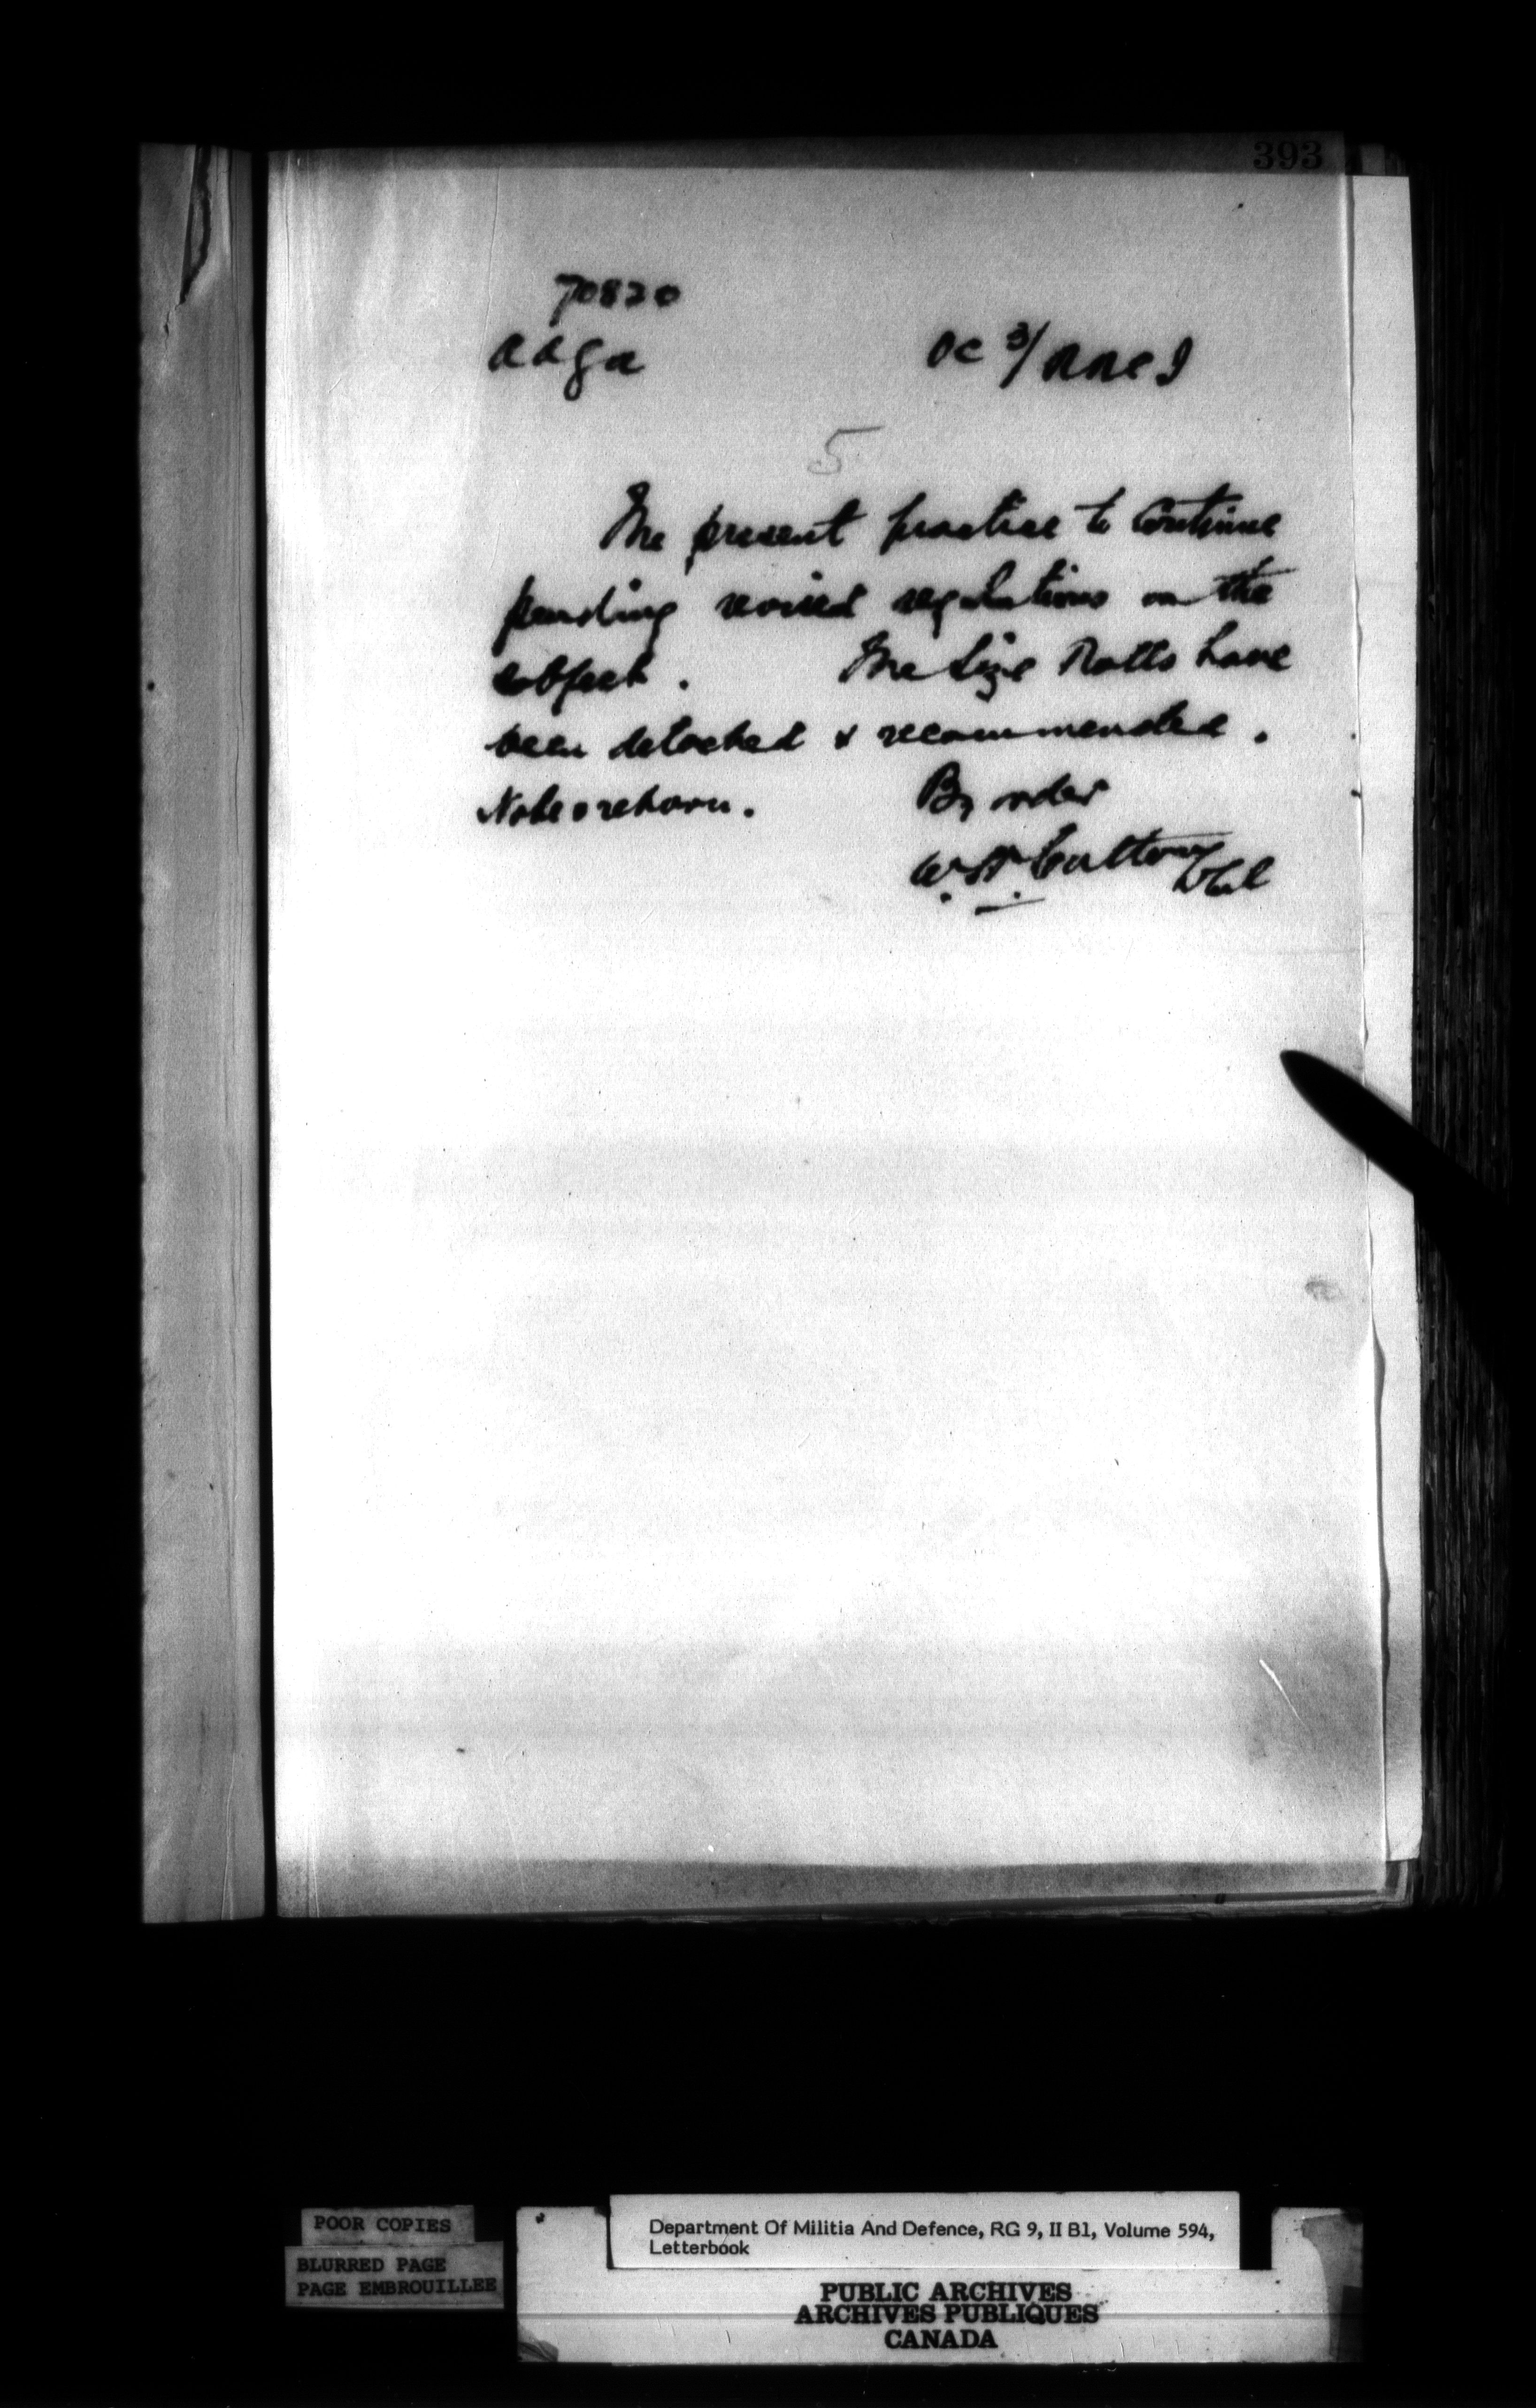 393
70820
AAGa
OC 3/RRCI
5
The present practice to continue
pending revised regulations on the
subject. The Size Rolls have
been detached & recommended.
Note & return. By order
W H Cotton
POOR COPIES
BLURRED PAGE
PAGE EMBROUILLEE
Department Of Militia And Defence, RG 9, II B1, Volume 594,
Letterbook
PUBLIC ARCHIVES
ARCHIVES PUBLIQUES
CANADA